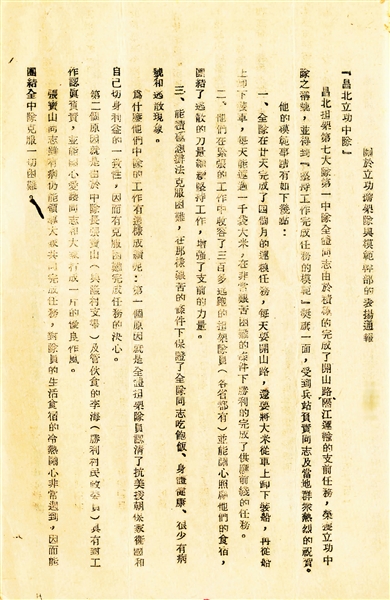 關於立功擔架隊與模範幹部的表揚通報
『昌北立功中隊』
昌北担架第七大隊第一中隊全體同志由於積極的完成了開山路隔江運輸的支前任務，榮獲立功中
隊之稱號，並得到『堅持工作完成任務的模範』獎旗一面，受到兵站負責同志及當地群眾熱烈的祝賀。
他的模範事蹟有如下幾點：
一、全隊在廿天完成了四個月的運糧任務，每天要開山路，還要將大米從車上卸下裝船，再從船
上卸下裝車，每天能運過一千袋大米，在非常艱苦困難的條件下勝利的完成了供應前綫的任務。
二、他們在緊張的工作中收容了三百多逃跑的担架隊員（各省都有）並能關心照顧他們的食宿，
團結了逃散的力量繼續堅持工作，增強了支前的力量。
三、能積極想辦法克服困難，在那樣艱苦的條件下保證了全隊同志吃飽飯、身體健康、很少有病
號和逃散現象。
為什麼他們中隊的工作有這樣成績呢：第一個原因就是全體担架隊員認清了抗美援朝保家衛國和
自己切身利益的一致性，因而有克服困難完成任務的決心。
第二個原因就是由於中隊長張寶山（興隆村支書）及管伙食的李海（勝利村民政委員）具有對工
作認真負責，並能關心愛護同志和大家打成一片的優良作風。
張寶山同志雖有病仍能領導大家共同完成任務，對隊員的生活食宿的冷熱關心非常週到，因而能
團結全中隊克服一切困難。